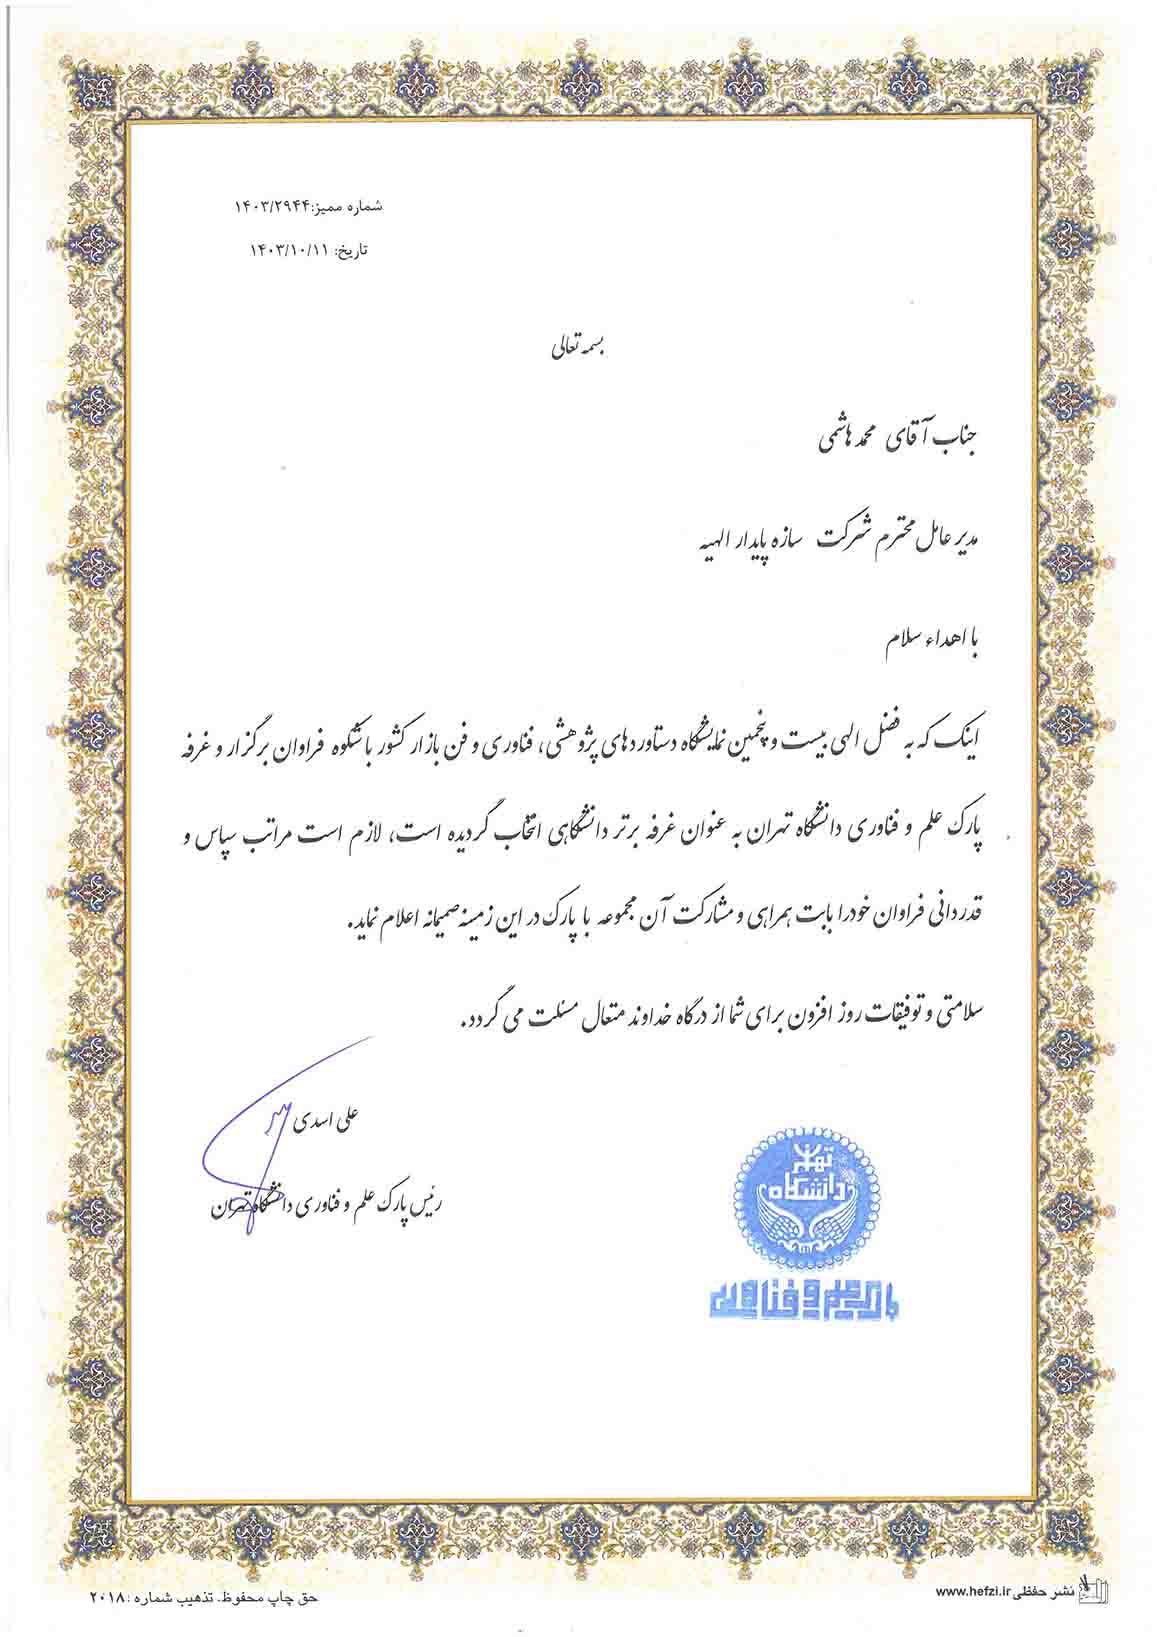 شماره ممیز:۱۴۰۳/۲۹۴۴
تاریخ: ۱۴۰۳/۱۰/۱۱
بسمه تعالی
جناب آقای محمد هاشمی
مدیر عامل محترم شرکت سازه پایدار الهیه
با اهداء سلام
اینک که به فضل الهی بیست و پنجمین نمایشگاه دستاوردهای پژوهشی، فناوری و فن بازار کشور با شکوه فراوان برگزار و غرفه
پارک علم و فناوری دانشگاه تهران به عنوان غرفه برتر دانشگاهی انتخاب گردیده است، لازم است مراتب سپاس و
قدردانی فراوان خود را بابت همراهی و مشارکت آن مجموعه با پارک در این زمینه صمیمانه اعلام نماید.
سلامتی و توفیقات روز افزون برای شما از درگاه خداوند متعال مسئلت می گردد.
علی اسدی
رئیس پارک علم و فناوری دانشگاه تهران
دانشگاه تهران
پارک علم و فناوری
نشر حفظی www.hefzi.ir
حق چاپ محفوظ. تذهیب شماره :۲۰۱۸